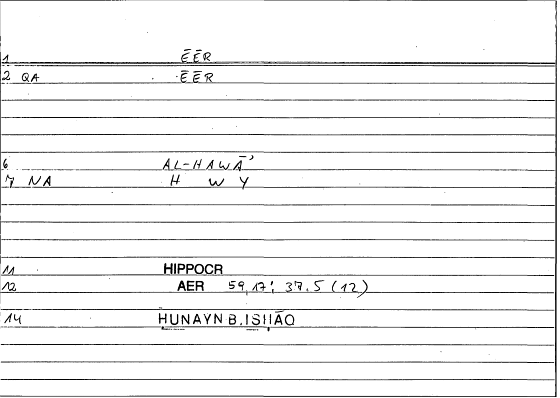 1 ĒĒR
2 QA ĒĒR
6 AL-HAWĀʾ
7 NA H W Y
11 HIPPOCR
12 AER 59,17; 37.5 (12)
14 ḤUNAYN B. ISḤĀQ